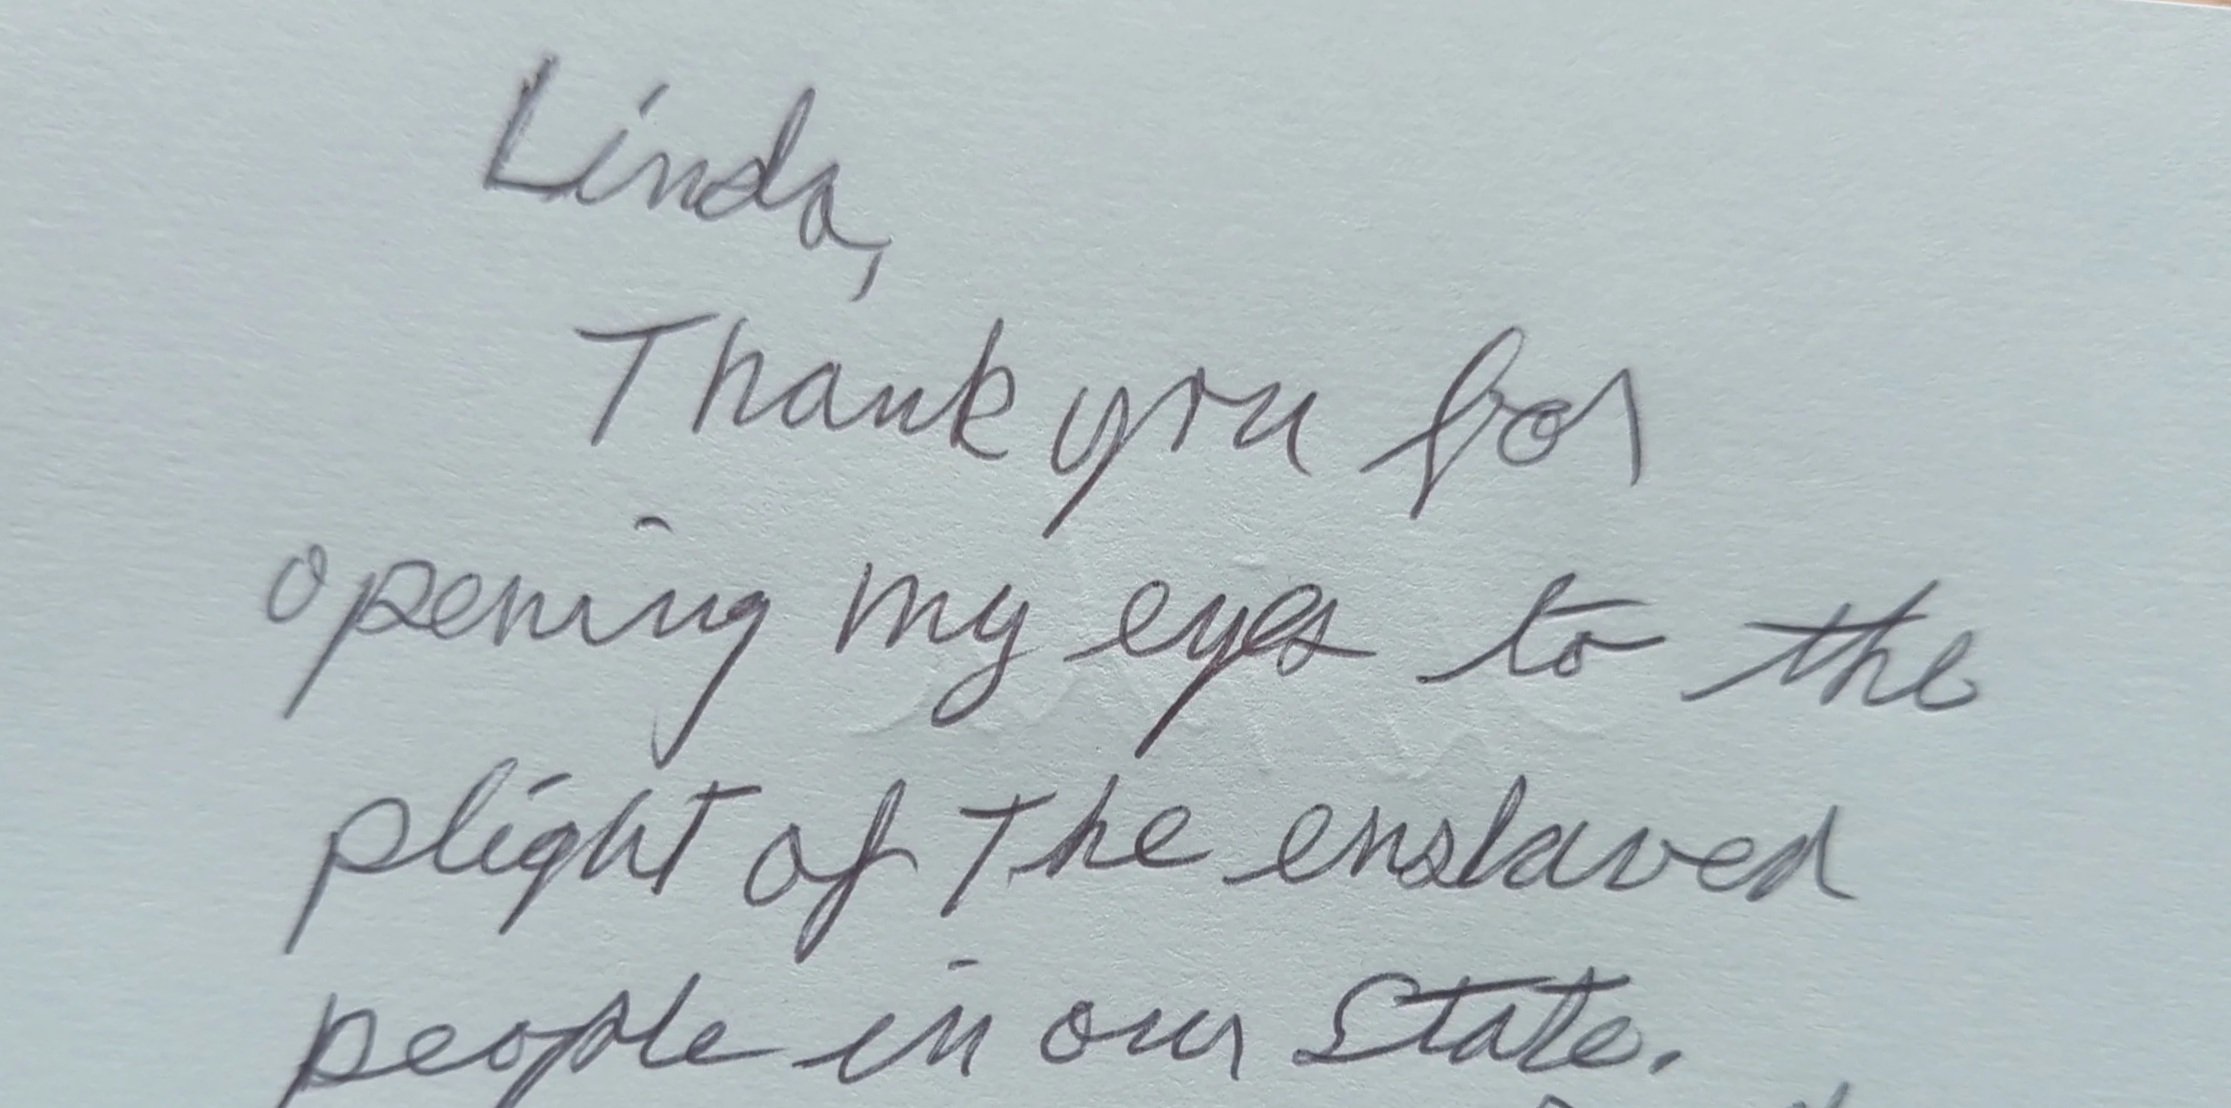 Linda,
Thank you for
opening my eyes to the
plight of the enslaved
people in our State.